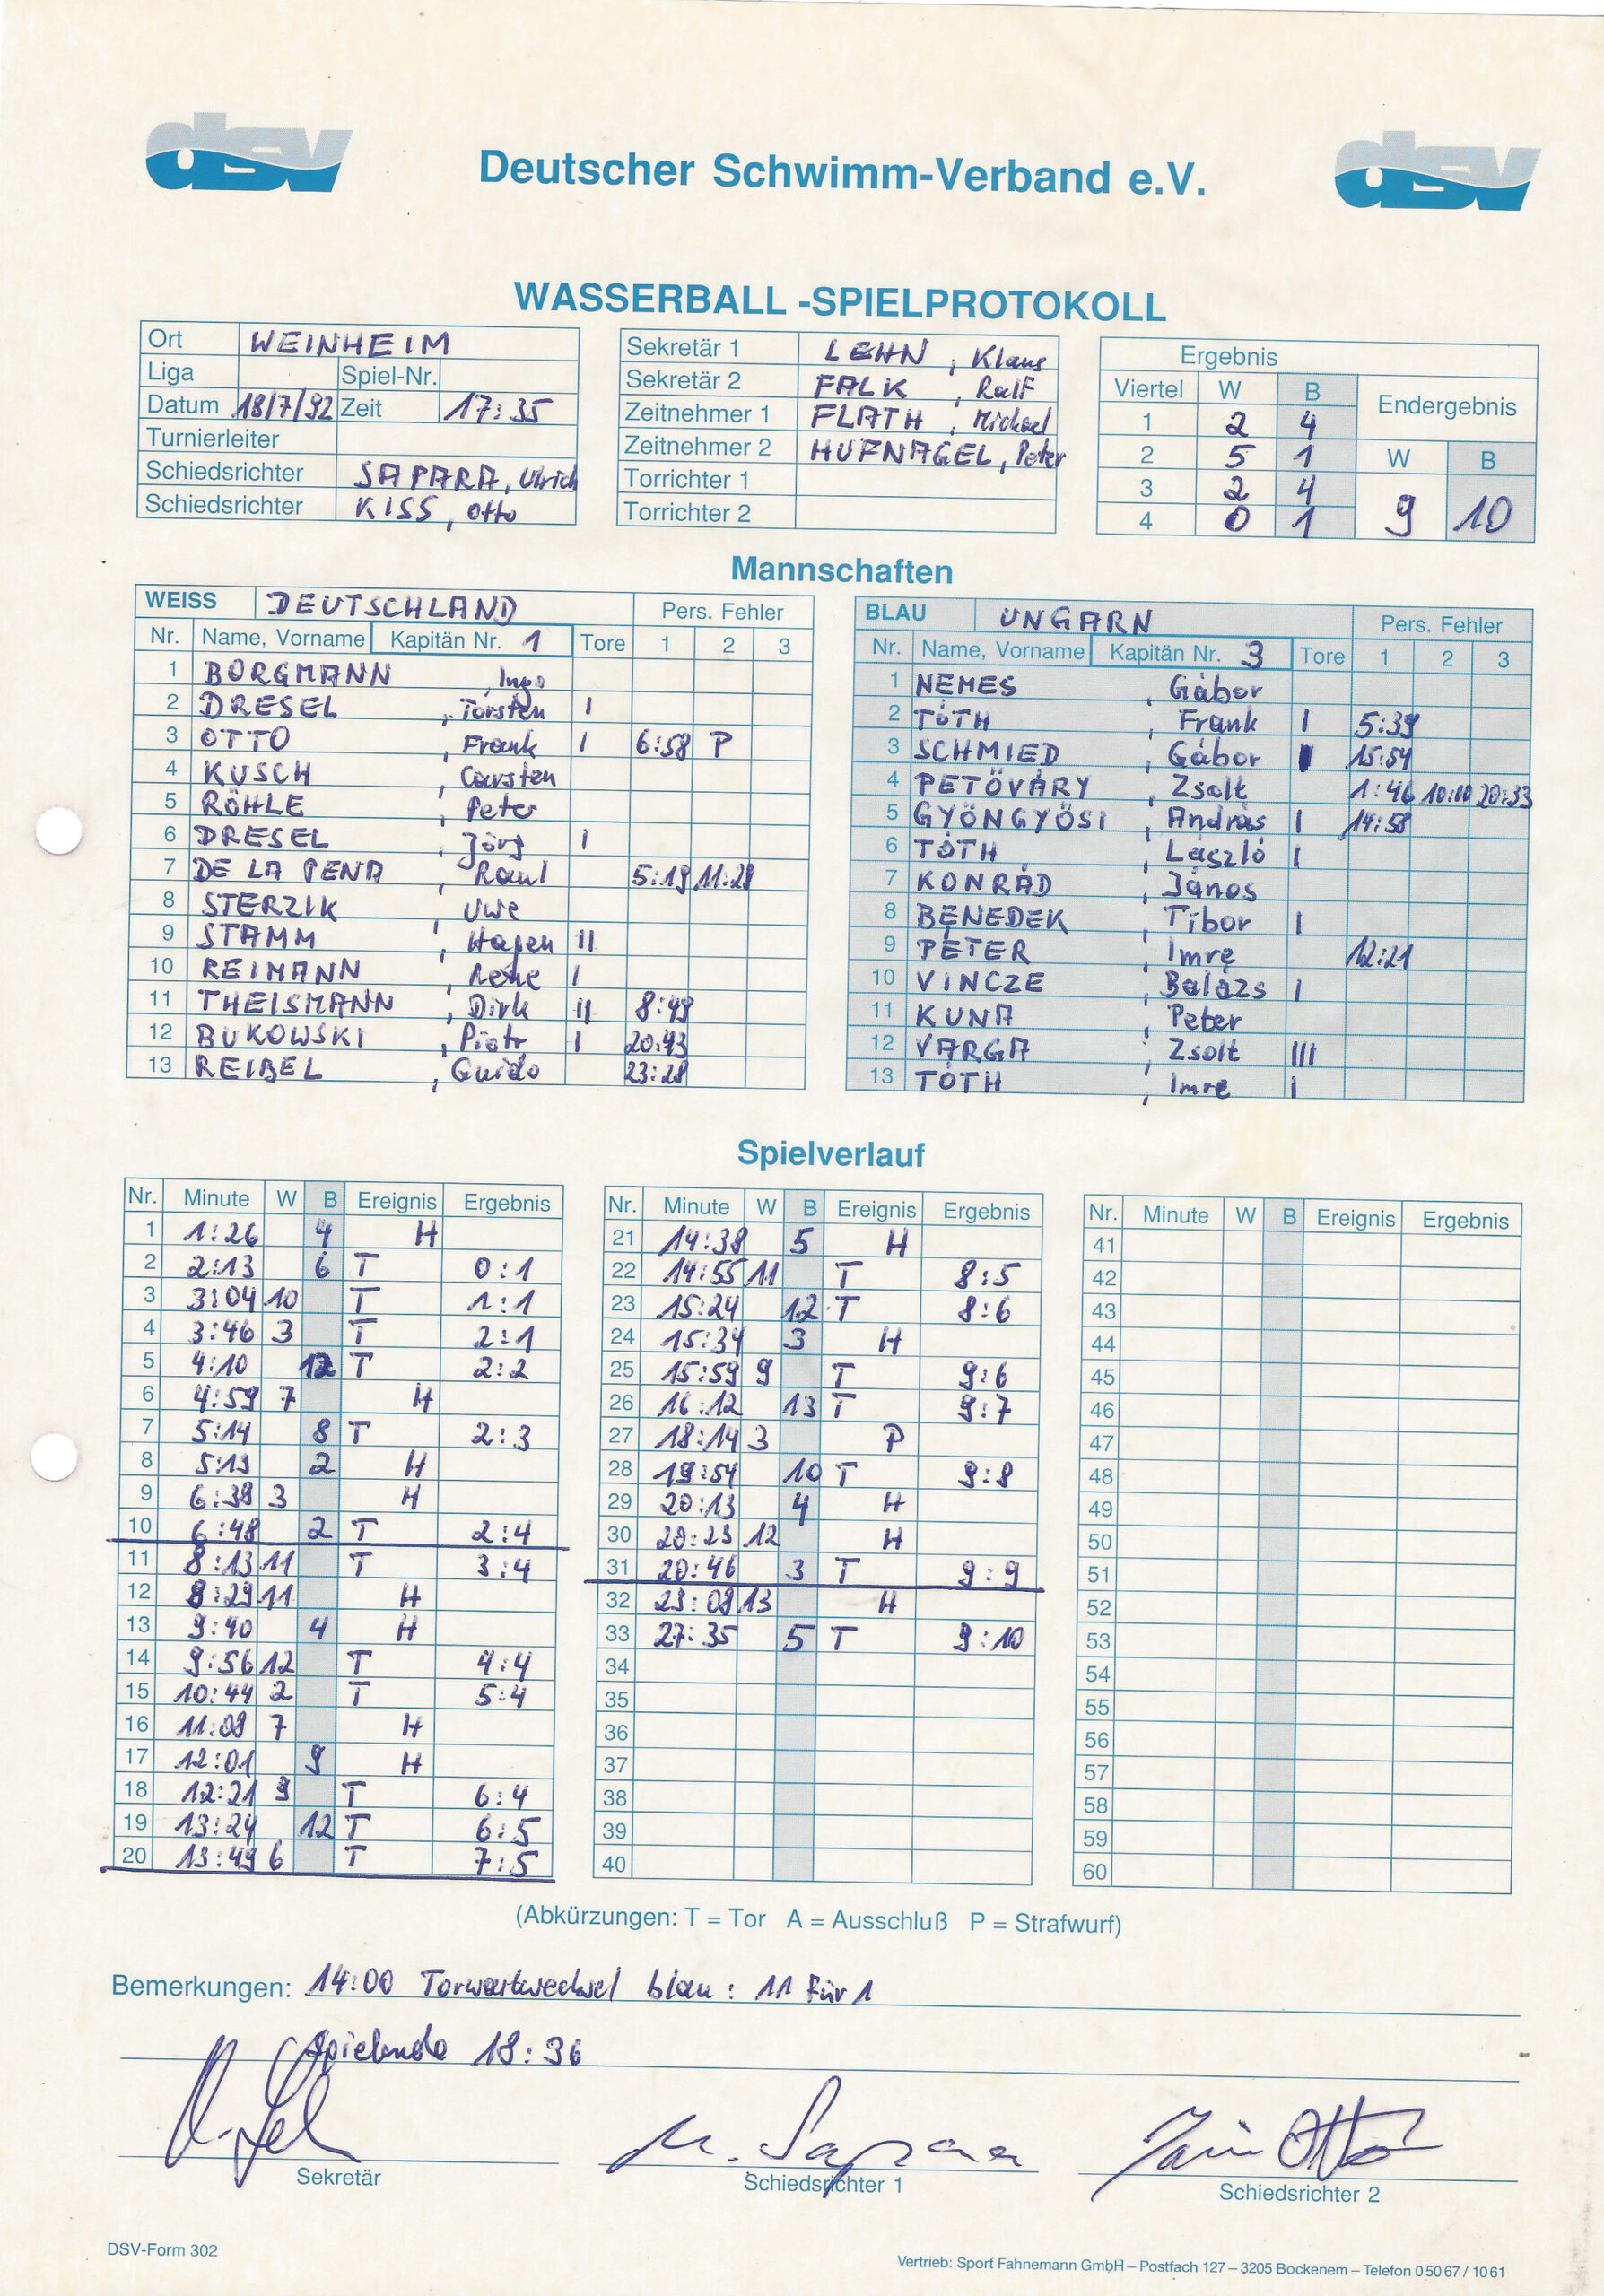 dsv
Deutscher Schwimm-Verband e.V.
dsv
WASSERBALL -SPIELPROTOKOLL
Ort WEINHEIM
Liga Spiel-Nr.
Datum 18/7/92 Zeit 17:35
Turnierleiter
Schiedsrichter SAPARA, Ulrich
Schiedsrichter KISS, Otto
Sekretär 1 LEHN, Klaus
Sekretär 2 FALK, Ralf
Zeitnehmer 1 FLATH, Michael
Zeitnehmer 2 HUFNAGEL, Peter
Torrichter 1
Torrichter 2
Ergebnis
Viertel W B Endergebnis
1 2 4
2 5 1 W B
3 2 4
4 0 1 9 10
Mannschaften
WEISS DEUTSCHLAND Pers. Fehler
Nr. Name, Vorname Kapitän Nr. 1 Tore 1 2 3
1 BORGMANN, Ingo
2 DRESEL, Torsten I
3 OTTO, Frank I 6:58 P
4 KUSCH, Carsten
5 RÖHLE, Peter
6 DRESEL, Jörg I
7 DE LA PENA, Raul 5:19 11:28
8 STERZIK, Uwe
9 STAMM, Hagen II
10 REIMANN, Rene I
11 THEISMANN, Dirk II 8:49
12 BUKOWSKI, Piotr I 20:43
13 REIBEL, Guido 23:28
BLAU UNGARN Pers. Fehler
Nr. Name, Vorname Kapitän Nr. 3 Tore 1 2 3
1 NEMES, Gábor
2 TÓTH, Frank I 5:39
3 SCHMIED, Gábor I 15:54
4 PETÖVÁRY, Zsolt 1:46 10:00 20:33
5 GYÖNGYÖSI, András I 14:58
6 TÓTH, László I
7 KONRÁD, János
8 BENEDEK, Tibor I
9 PÉTER, Imre 12:21
10 VINCZE, Balázs I
11 KUNA, Peter
12 VARGA, Zsolt III
13 TÓTH, Imre I
Spielverlauf
Nr. Minute W B Ereignis Ergebnis
1 1:26 4 H
2 2:13 6 T 0:1
3 3:04 10 T 1:1
4 3:46 3 T 2:1
5 4:10 12 T 2:2
6 4:59 7 H
7 5:14 8 T 2:3
8 5:19 2 H
9 6:38 3 H
10 6:48 2 T 2:4
11 8:13 11 T 3:4
12 8:29 11 H
13 9:40 4 H
14 9:56 12 T 4:4
15 10:44 2 T 5:4
16 11:08 7 H
17 12:01 9 H
18 12:21 9 T 6:4
19 13:24 12 T 6:5
20 13:49 6 T 7:5
Nr. Minute W B Ereignis Ergebnis
21 14:38 5 H
22 14:55 11 T 8:5
23 15:24 12 T 8:6
24 15:34 3 H
25 15:59 9 T 9:6
26 16:12 13 T 9:7
27 18:14 3 P
28 19:54 10 T 9:8
29 20:13 4 H
30 20:23 12 H
31 20:46 3 T 9:9
32 23:08 13 H
33 27:35 5 T 9:10
34
35
36
37
38
39
40
Nr. Minute W B Ereignis Ergebnis
41
42
43
44
45
46
47
48
49
50
51
52
53
54
55
56
57
58
59
60
(Abkürzungen: T = Tor A = Ausschluß P = Strafwurf)
Bemerkungen: 14:00 Torwartwechsel blau: 11 für 1
Spielende 18:36
Sekretär
Schiedsrichter 1
Schiedsrichter 2
DSV-Form 302
Vertrieb: Sport Fahnemann GmbH – Postfach 127 – 3205 Bockenem – Telefon 0 50 67 / 10 61